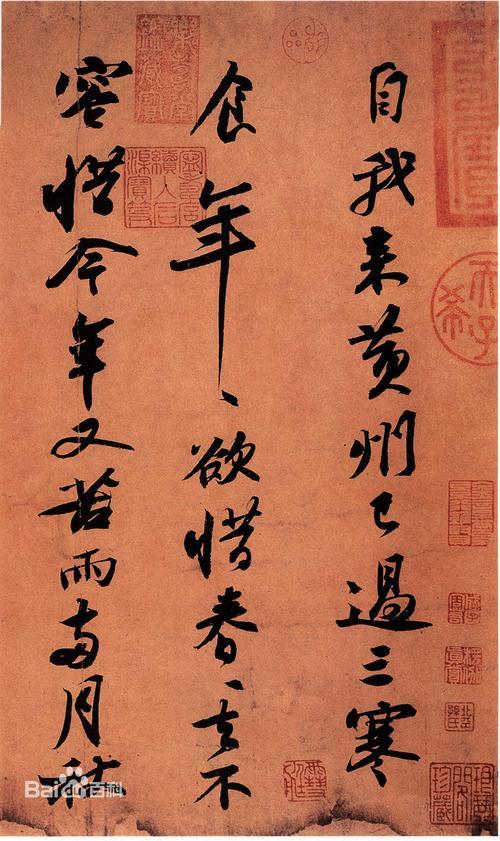 自我来黄州已過三寒
食年、欲惜春、去不
容惜今年又苦雨兩月秋
Bai百科